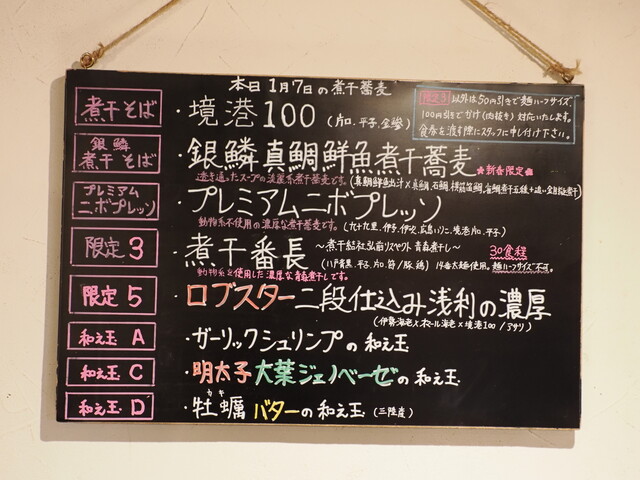 本日1月7日の煮干蕎麦
限定3 以外は50円引きで麺ハーフサイズ、
100円引きでかけ(肉抜き)対応いたします。
食券を渡す際にスタッフに申し付け下さい。
煮干そば ・境港100 (片口、平子、金鯵)
銀鱗煮干そば ・銀鱗真鯛鮮魚煮干蕎麦 ★新春限定
透き通ったスープの淡麗系煮干蕎麦です。(真鯛鮮魚出汁×真鯛、石鯛、
プレミアムニボプレッソ ・プレミアムニボプレッソ
動物系不使用の濃厚な煮干蕎麦です。(九十九里、伊予、伊吹、広島いりこ、境港片口、平子)
限定3 ・煮干番長 ～煮干結社弘前リスペクト 青森煮干し～ 30食程
(八戸青黒、平子、片口、笹/豚、鶏) 14番太麺使用。麺ハーフサイズ不可。
動物系を使用した濃厚な青森煮干しです。
限定5 ・ロブスター二段仕込み浅利の濃厚
(伊勢海老×オマール海老×境港100/アサリ)
和え玉 A ・ガーリックシュリンプの和え玉
和え玉 C ・明太子大葉ジェノベーゼの和え玉
和え玉 D ・牡蠣バターの和え玉 (三陸産)
カキ